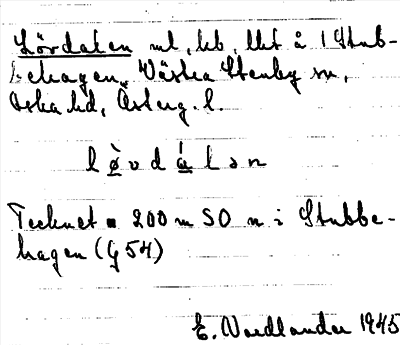 Lördalen ml, kb, lht å 1 Stub-
behagen, Västra Stenby sn,
Aska hd, Österg. l.
l ø̀ v d á l ə n
Tecknet = 200 m SO n i Stubbe-
hagen (G 54)
E. Nordlander 1945